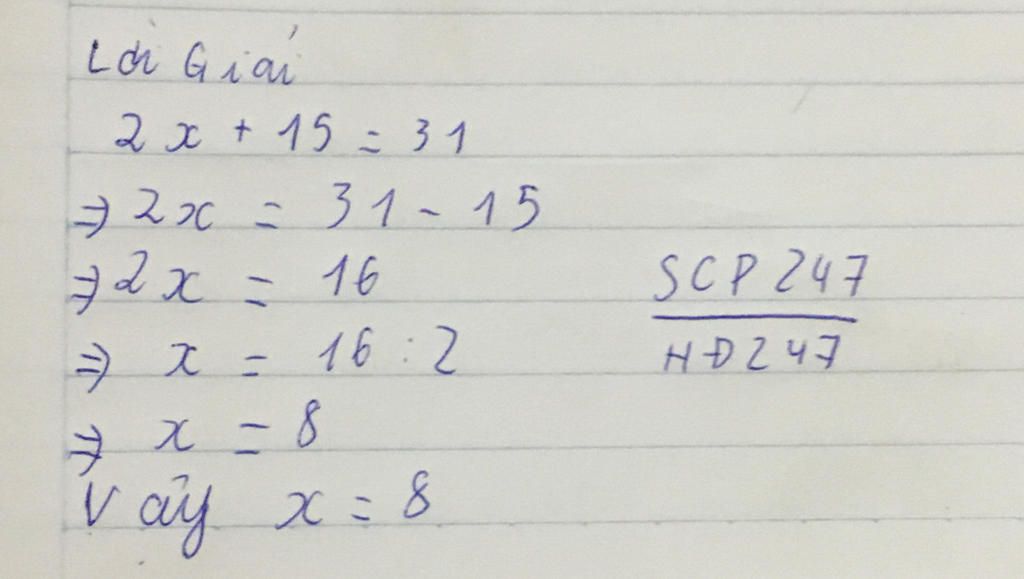 Lời Giải
2x + 15 = 31
⇒ 2x = 31 - 15
⇒ 2x = 16
⇒ x = 16 : 2
⇒ x = 8
Vậy x = 8
SCP 247
HĐ247